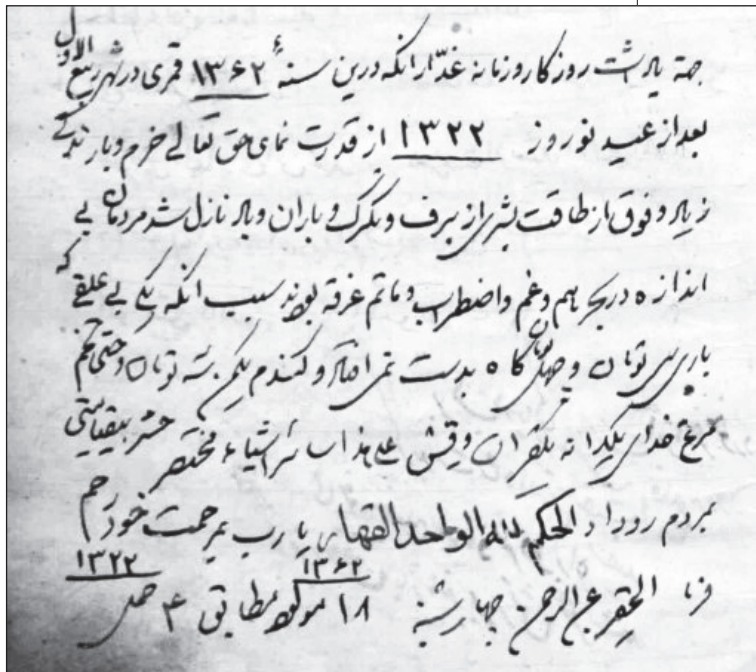 جهة یاداشت روزکار و زمانه غدّار انکه درین سنهٔ ۱۳۶۲ قمری در شهر ربیع الاول
بعد از عید نوروز ۱۳۲۲ از قدرت نمای حق تعالی خرم و بارندگی
زیاد و فوق از طاقت بشر از برف و تکرک و باران و بلا نازل شد مردمان بی
اندازه در بحر هم و غم و اضطراب و ماتم غرقه بودند سبب انکه یکی بی علقی که
باری سی تومان و چهل تومان کاه بدست نمی افتاد و کندم یکمن سه تومان و حتی تخم
مرغ خدای یکدانه یکقران و قس علی هذا سائر اشیاء مختصر حشر بیقیامتی
بمردم روداد الحکم لله الواحد القهار یا رب بمرحمت خود رحم
فرما الحقیر چهارشنبه ۱۸ مولود ۱۳۶۲ مطابق ۴ حمل ۱۳۲۲